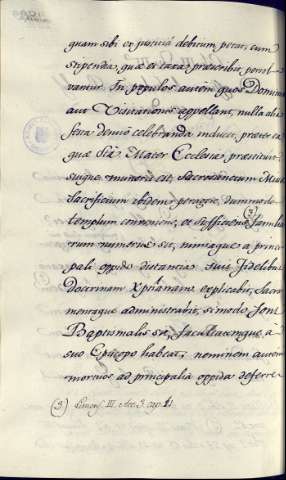 quam sibi ex justitia debitum petat; cum
stipendia, quæ ex taxa præscribit, persol-
vantur. In populos autem quos Dominæ
aut Visitationes appellant, nulla alia
festa denuo celebranda inducet, præter ea
quæ Sta Mater Ecclesia præstituit
suique muneris est, Sacrosanctum Missæ
Sacrificium ibidem peragere, dummodo
templum conveniens, et sufficiens (3) familia
rum numerus sit, nimiaque a princi-
pali oppido distantia. Suis fidelibus
doctrinam Xptianam explicabit, Sacra
mentaque administrabit, si modo fons
Baptismalis sit, facultatemque a
suo Episcopo habeat; neminem autem
mortuos ad principalia oppida deferre
(3) Limens. III. Act. 3. cap.